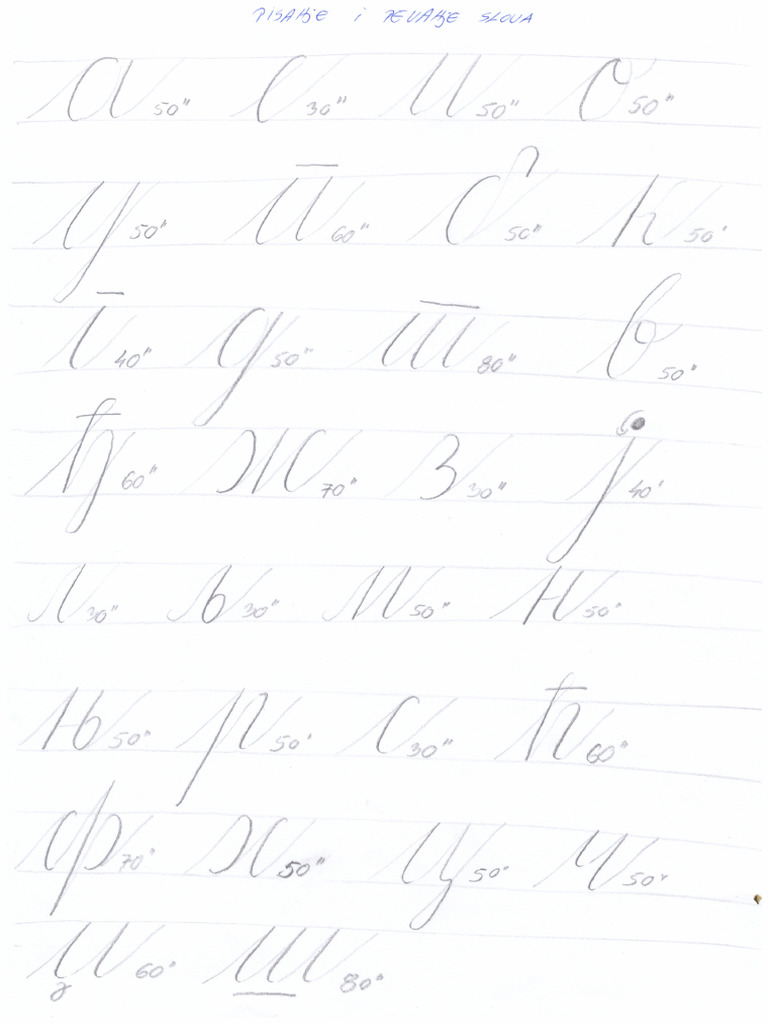 PISANJE i PEVANJE SLOVA
а 50" е 30" и 50" о 50"
у 50" п 60" б 50" к 50'
г 40" д 50" т 80" в 50"
ђ 60" ж 70" з 30" ј 40'
л 30" љ 30" м 50" н 50"
њ 50" р 50' с 30" ћ 60"
ф 70" х 50" ц 50" ч 50"
џ 60" ш 80"